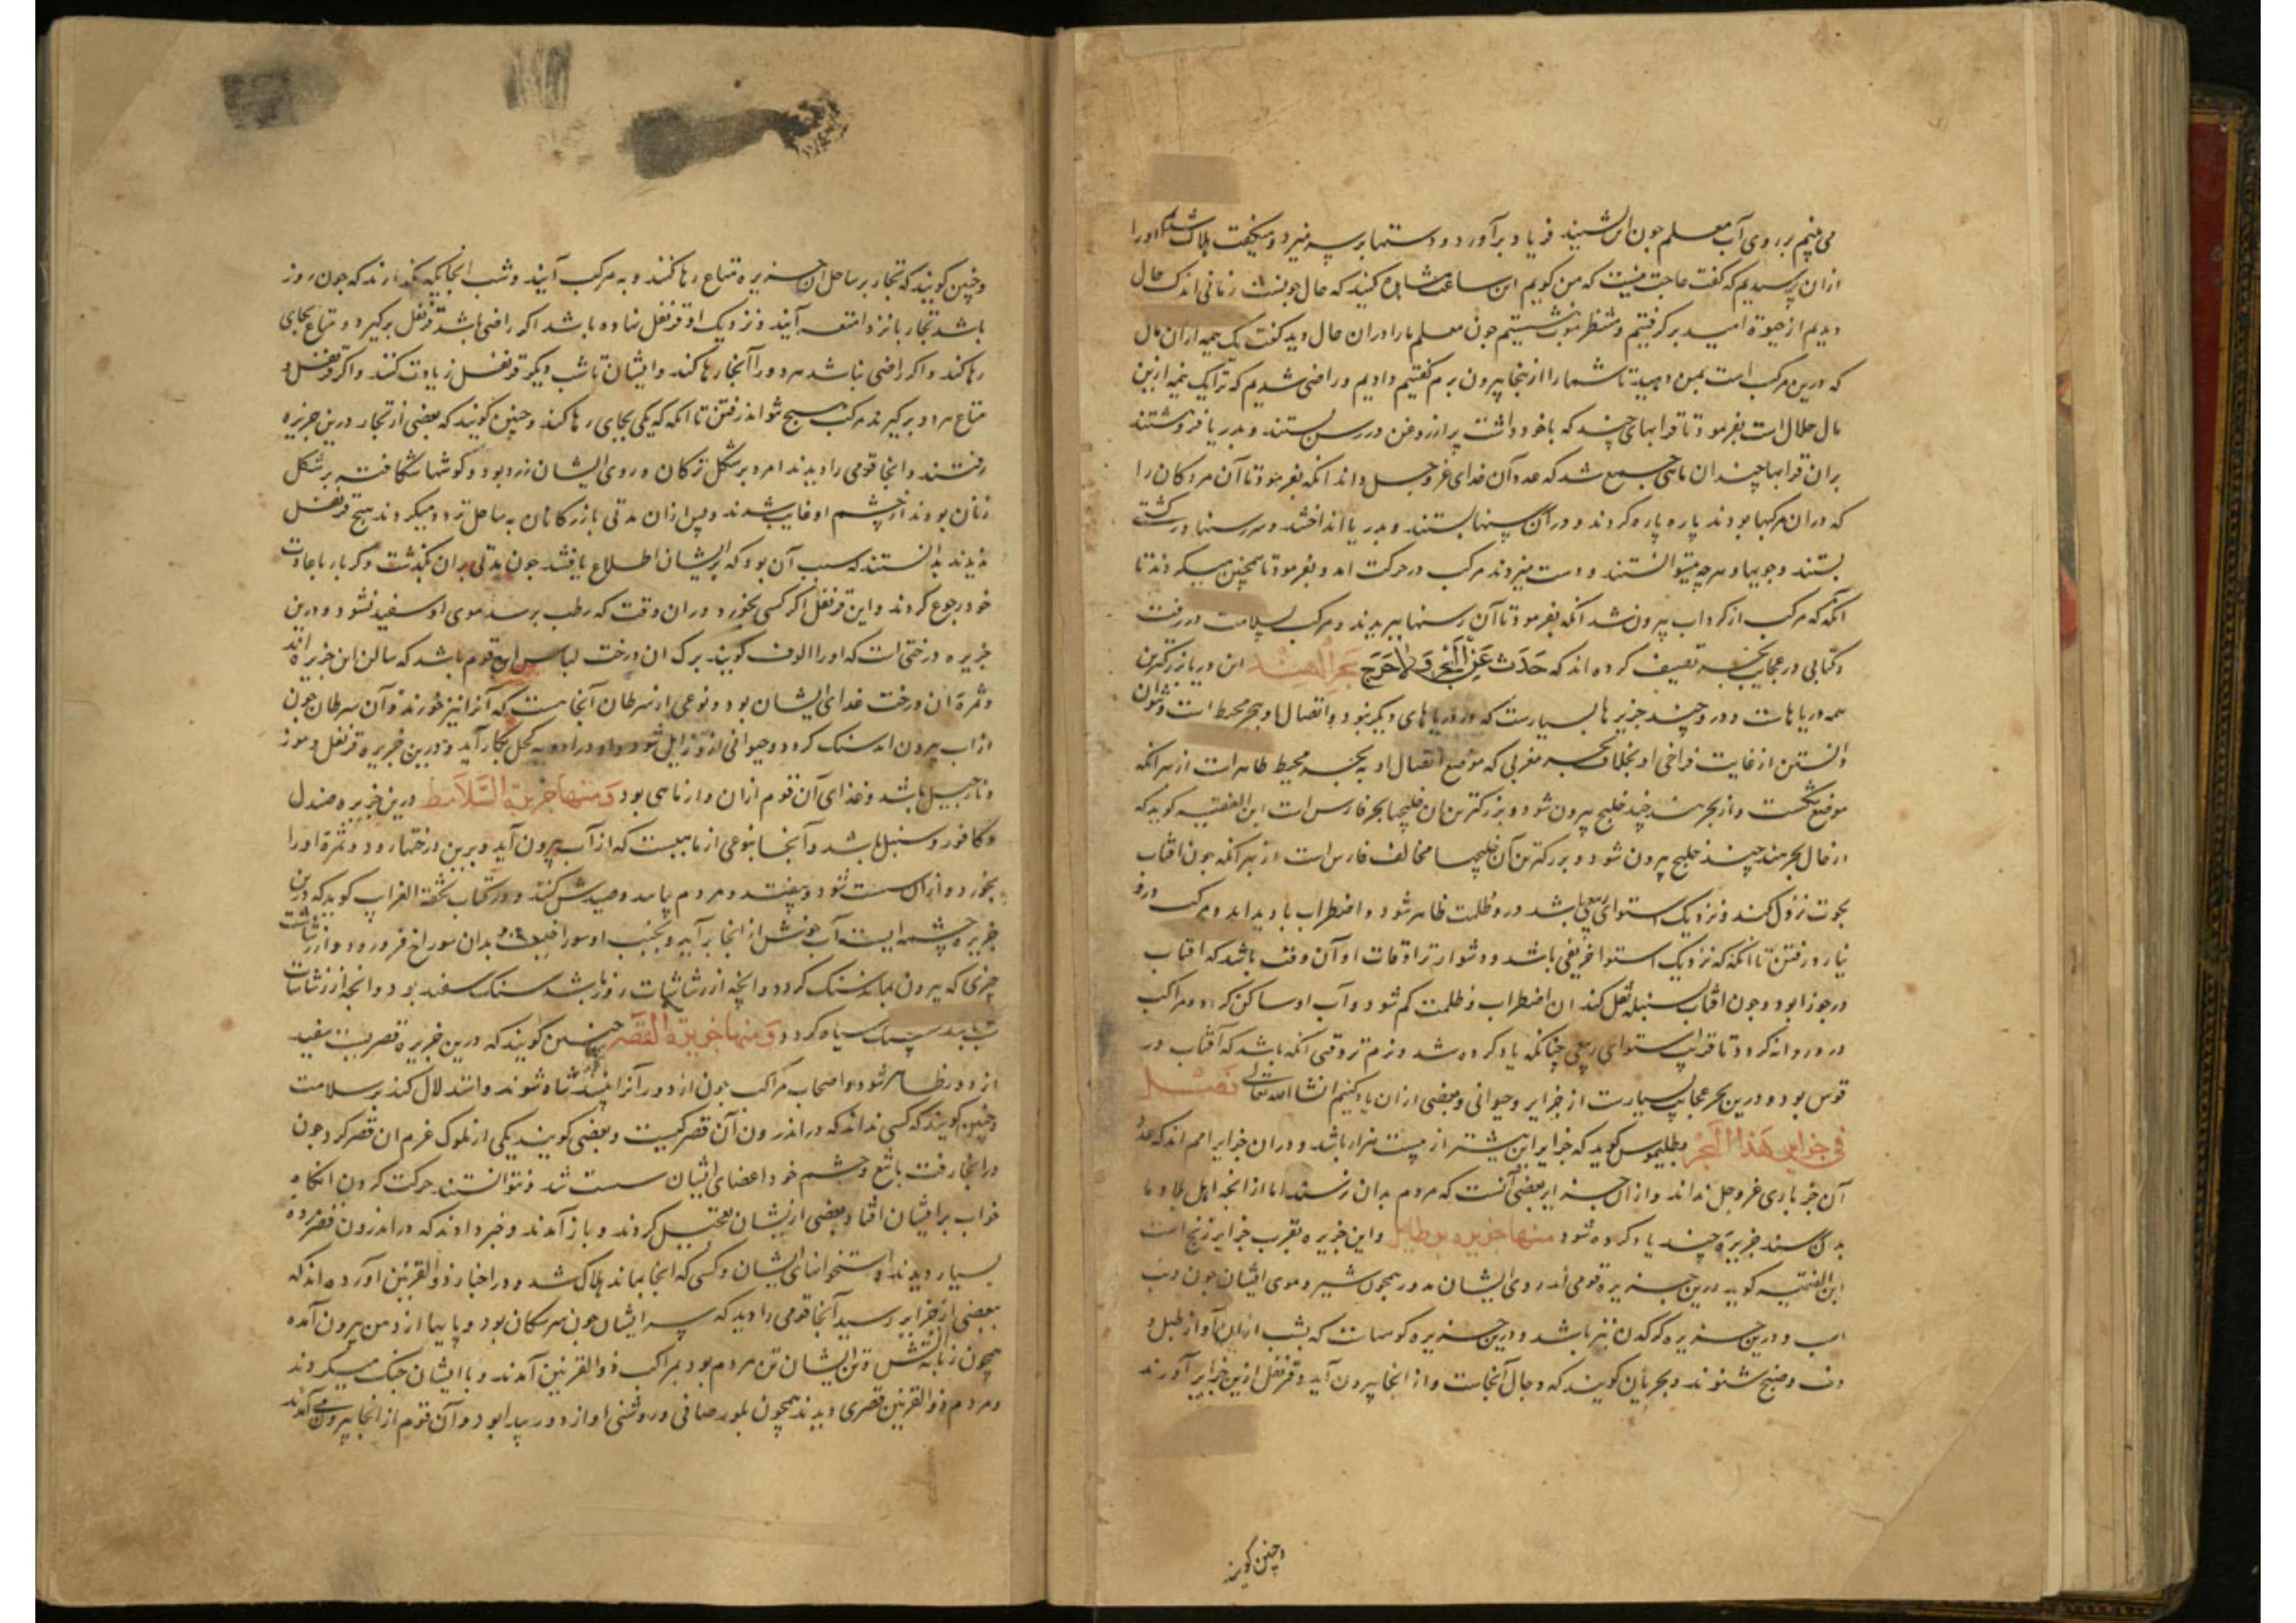 می بینم بر روی آب معلم چون این شنید فریاد برآورد و دستها بر سر میزد و میگفت هلاک شدیم اورا
ازان پرسیدیم که گفت حاجت نیست که من کویم این ساعت مشاهده کنید که حال چونست زمانی اندک حال
دیدیم از حیوة امید برگرفتیم و منتظر موت نشستیم چون معلم مارا دران حال دید گفت یک نیمه ازان مال
که درین مرکب است بمن دهید تا شمارا ازینجا بیرون برم گفتیم دادیم و راضی شدیم که ترا یک نیمه ازین
مال حلال است بفرمود تا قرابهای چند که باخود داشت پر از روغن در رسن بستند و بدریا فروهشتند
بران قرابها چندان ماهی جمع شد که عدد آن خدای عز وجل داند انکه بفرمود تا آن مردکان را
که دران مرکبها بودند پاره پاره کردند و دران رسنها بستند و بدریا انداختند و سر رسنها در کشتی
بستند و چوبها و هرچه میتوانستند و دست میزدند مرکب در حرکت امد و بفرمود تا همچنین میکردند تا
انکه که مرکب از کرداب بیرون شد انکه بفرمود تا آن رسنها ببریدند و مرکب بسلامت در رفت
وکتابی در عجایب بحر تصنیف کرده اند که حدث عن البحر ولا حرج بحر الهند این دریا بزرکترین
همه دریاهات و درو چند جزیرها بسیارست که در دریاهای دیکر نبود و اتصال او ببحر محیط است و نتوان
دانستن از غایت فراخی او بخلاف بحر مغربی که موضع اتصال او به بحر محیط ظاهر است از بهر انکه
موضع تنکست و از بحر هند چند خلیج بیرون شود و بزرکترین آن خلیجها بحر فارس است ابن الفقیه کوید که
از حال بحر هند چند خلیج بیرون شود و بزرکترین آن خلیجها مخالف فارس است از بهر انکه چون افتاب
بحوت نزول کند و نزدیک استوای ربیعی باشد درو ظلمت ظاهر شود و اضطراب بادید اید و مرکب درو
نیارد رفتن تا انکه که نزدیک استوا خریفی باشد و دشوارترِ اوقات او آن وقت باشد که افتاب
در جوزا بود و چون افتاب بسنبله نقل کند ان اضطراب و ظلمت کم شود و آب او ساکن کردد و مراکب
درو روانه کردد تا قرب استوای ربیعی چنانکه یاد کرده شد و نرم تر وقتی انکه باشد که آفتاب در
قوس بود و درین بحر عجایب بسیارست از جزایر و حیوانی و بعضی ازان یاد کنیم انشا الله تعالی فصل
فی جزایر هذا البحر بطلیموس کوید که جزایر این بیشتر از بیست هزار باشد و دران جزایر امم اند که عدد
آن جز باری عز وجل نداند و ازان جزایر بعضی آنست که مردم بدان نرسند اما از انچه اهل بلاد ما
بدان رسند جزیرهٔ چند یاد کرده شود منها جزیره برطایل و این جزیره بقرب جزایر زنج است
ابن الفقیه کوید درین جزیره قومی اند روی ایشان مدور همچون سپر و موی ایشان چون دنب
اسب و درین جزیره کرکدن نیز باشد و درین جزیره کوههات که بشب ازان آواز طبل و
دف و صنج شنوند و بحریان کویند که دجال آنجاست و از انجا بیرون آید و قرنفل ازین جزایر آورند
وچنین کویند
وچنین کویند که تجار بر ساحل ان جزیره متاع رها کنند و به مرکب آیند و شب انجایکه بکذارند که چون روز
باشد تجار بانزد امتعه آیند و نزدیک او قرنفل نهاده باشد اکر راضی باشد قرنفل برکیرد و متاع بجای
رها کند و اکر راضی نباشد هر دورا آنجا رها کند و ایشان تا شب دیکر قرنفل زیادت کنند و اکر قرنفل و
متاع هر دو برکیرند مرکب هیچ نتواند رفتن تا انکه که یکی بجای رها کند وچنین کویند که بعضی از تجار درین جزیره
رفتند و انجا قومی را دیدند امرد بر شکل ترکان و روی ایشان زرد بود و کوشها شکافته بر شکل
زنان بودند از چشم او غایب شدند و پس ازان مدتی بازرکانان به ساحل تردد میکردند هیچ قرنفل
ندیدند بدانستند که سبب آن بود که بر ایشان اطلاع یافتند چون مدتی بران بکذشت دکر بار باعادت
خود رجوع کردند و این قرنفل اکر کسی بخورد دران وقت که رطب برسد موی او سفید نشود و درین
جزیره درختی است که اورا الوف کویند برک ان درخت لباس این قوم باشد که ساکن این جزیره اند
و ثمرة ان درخت غذای ایشان بود و نوعی از سرطان آنجا هست که آنرا نیز خورند و آن سرطان چون
از اب بیرون اید سنک کردد و حیوانی ازو زایل شود و اورا در ادویه کحل بکار آید و درین جزیره قرنفل و موز
و نارجیل باشد و غذای آن قوم ازان و از ماهی بود ومنها جزیرة السلامط درین جزیره صندل
و کافور و سنبل باشد و آنجا نوعی از ماهیست که از آب بیرون آید و برین درختها رود و ثمرة اورا
بخورد و ازان مست شود و بیفتد و مردم بیامد و صیدش کند و در کتاب تحفة الغرایب کوید که درین
جزیره چشمه ایست آب جوش از انجا برآید و بجنب او سوراخیست بدان سوراخ فرو رود و از رشاشات
چیزی که بیرون بماند سنک کردد و انچه از رشاشات روز باشد سنک سفید بود و انچه از رشاشات
شب باشد سنک سیاه کردد ومنها جزیرة القصر چنین کویند که درین جزیره قصریست سفید
از دور ظاهر شود و اصحاب مراکب چون از دور آنرا بینند شاد شوند و استدلال کنند بر سلامت
وچنین کویند که کسی نداند که در اندرون آن قصر کیست و بعضی کویند یکی از ملوک عزم ان قصر کرد چون
در انجا رفت باتبع و حشم خود اعضای ایشان سست شد و نتوانستند حرکت کردن انکاه
خواب بر ایشان افتاد و بعضی از ایشان تعجیل کردند و باز آمدند و خبر دادند که در اندرون قصر مرده
بسیار دیدند و استخوانهای ایشان و کسی که انجا بماند هلاک شد و در اخبار ذو القرنین آورده اند که
ببعضی از جزایر رسید آنجا قومی را دید که سر ایشان چون سر سکان بود و پایها از دهن بیرون آمده
همچون زبانه آتش و تن ایشان تن مردم بود بمراکب ذو القرنین آمدند و با ایشان جنک میکردند
و مردم ذو القرنین قصری دیدند همچون بلور صافی و روشنی او از دور پیدا بود و آن قوم از انجا بیرون می آمدند